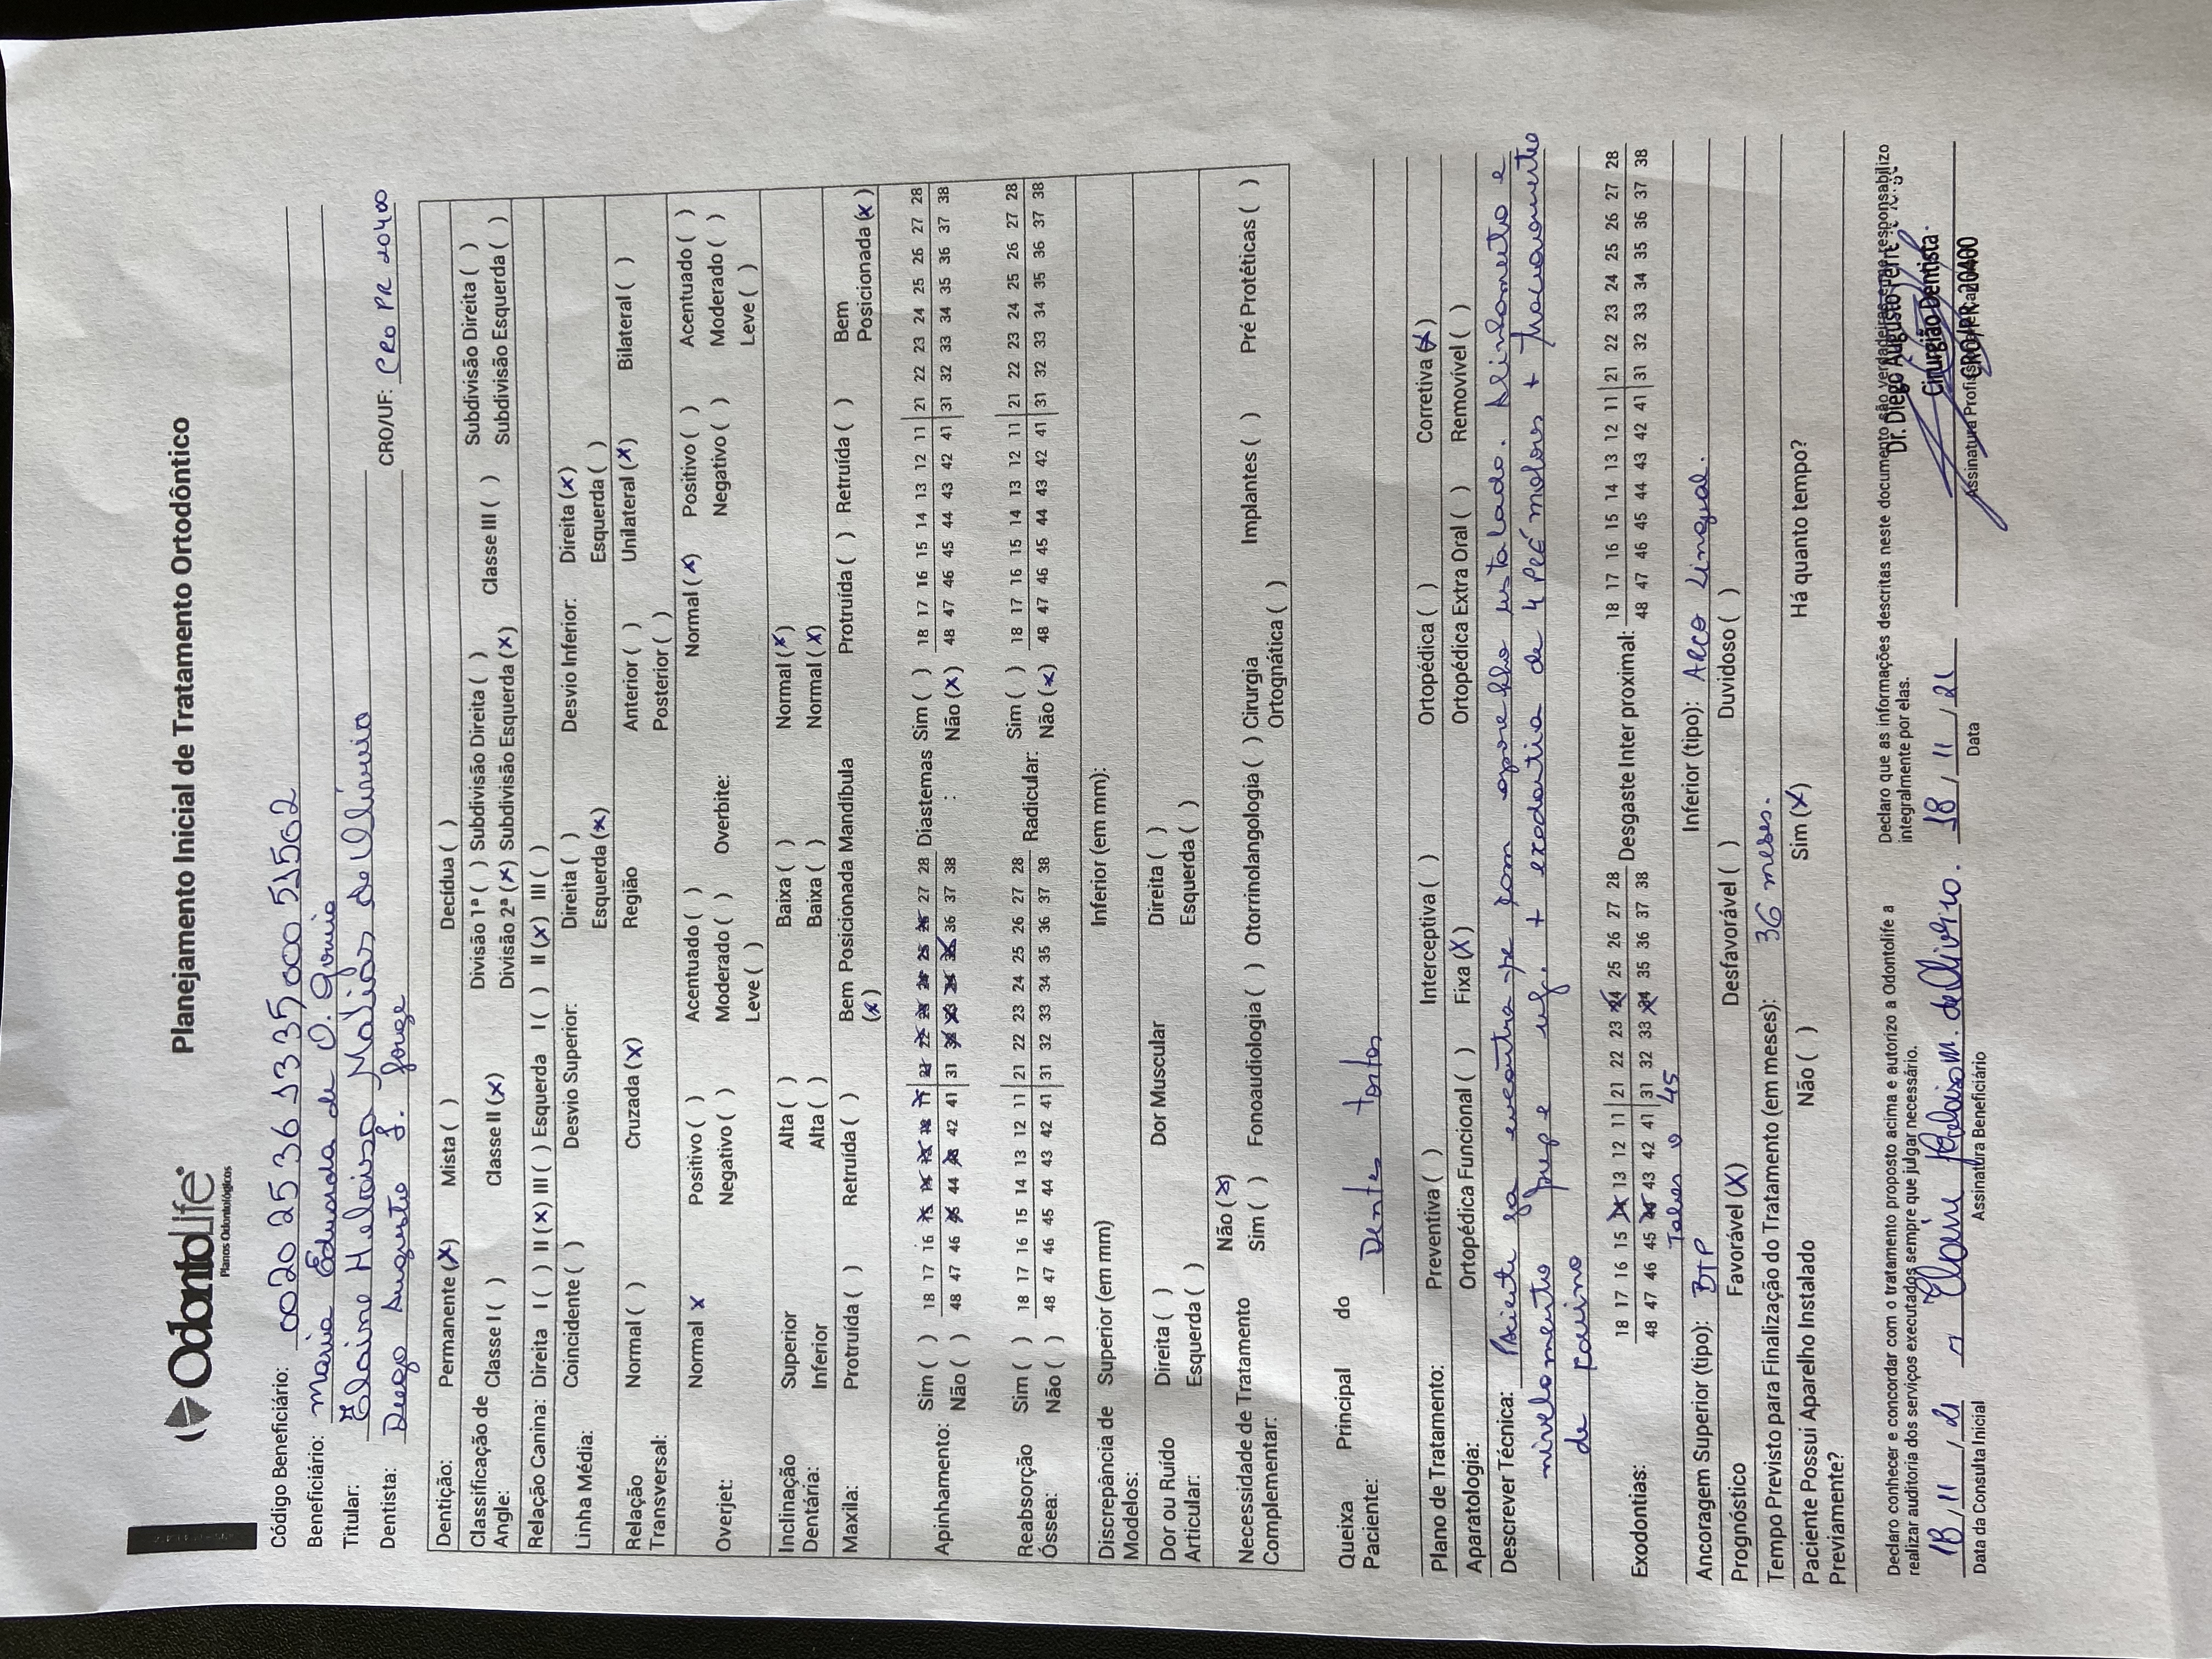 OdontoLife
Planos Odontológicos
Planejamento Inicial de Tratamento Ortodôntico
Código Beneficiário: 00202536133500051502
Beneficiário: Maria Eduarda de O.
Titular: Elaine Heloisa Malias de Oliveira
Dentista: Diego Augusto F. Jorge CRO/UF: CRO PR 20400
Dentição: Permanente (X) Mista ( ) Decídua ( )
Classificação de Angle: Classe I ( ) Classe II (X) Divisão 1ª ( ) Subdivisão Direita ( ) Classe III ( ) Subdivisão Direita ( )
Divisão 2ª (X) Subdivisão Esquerda (X) Subdivisão Esquerda ( )
Relação Canina: Direita I ( ) II (X) III ( ) Esquerda I ( ) II (X) III ( )
Linha Média: Coincidente ( ) Desvio Superior: Direita ( ) Desvio Inferior: Direita (X)
Esquerda (X) Esquerda ( )
Relação Transversal: Normal ( ) Cruzada (X) Região Anterior ( ) Unilateral (X) Bilateral ( )
Posterior ( )
Overjet: Normal X Positivo ( ) Acentuado ( ) Overbite: Normal (X) Positivo ( ) Acentuado ( )
Negativo ( ) Moderado ( ) Negativo ( ) Moderado ( )
Leve ( ) Leve ( )
Inclinação Dentária: Superior Alta ( ) Baixa ( ) Normal (X)
Inferior Alta ( ) Baixa ( ) Normal (X)
Maxila: Protruída ( ) Retruída ( ) Bem Posicionada (X) Mandíbula Protruída ( ) Retruída ( ) Bem Posicionada (X)
Apinhamento: Sim ( ) 18 17 16 15 14 13 12 11 21 22 23 24 25 26 27 28 Diastemas: Sim ( ) 18 17 16 15 14 13 12 11 21 22 23 24 25 26 27 28
Não ( ) 48 47 46 45 44 43 42 41 31 32 33 34 35 36 37 38 Não (X) 48 47 46 45 44 43 42 41 31 32 33 34 35 36 37 38
Reabsorção Óssea: Sim ( ) 18 17 16 15 14 13 12 11 21 22 23 24 25 26 27 28 Radicular: Sim ( ) 18 17 16 15 14 13 12 11 21 22 23 24 25 26 27 28
Não ( ) 48 47 46 45 44 43 42 41 31 32 33 34 35 36 37 38 Não (X) 48 47 46 45 44 43 42 41 31 32 33 34 35 36 37 38
Discrepância de Modelos: Superior (em mm) Inferior (em mm):
Dor ou Ruído Articular: Direita ( ) Dor Muscular Direita ( )
Esquerda ( ) Esquerda ( )
Necessidade de Tratamento Complementar: Não (X)
Sim ( ) Fonoaudiologia ( ) Otorrinolangologia ( ) Cirurgia Ortognática ( ) Implantes ( ) Pré Protéticas ( )
Queixa Principal do Paciente: Dentes tortos
Plano de Tratamento: Preventiva ( ) Interceptiva ( ) Ortopédica ( ) Corretiva (X)
Aparatologia: Ortopédica Funcional ( ) Fixa (X) Ortopédica Extra Oral ( ) Removível ( )
Descrever Técnica: Paciente ja encontra-se com aparelho instalado. Alinhamento e
nivelamento sup e inf. + exodontia de 4 PRÉ molares + tracionamento
de canino
Exodontias: 18 17 16 15 14 13 12 11 21 22 23 24 25 26 27 28 Desgaste Inter proximal: 18 17 16 15 14 13 12 11 21 22 23 24 25 26 27 28
48 47 46 45 44 43 42 41 31 32 33 34 35 36 37 38 48 47 46 45 44 43 42 41 31 32 33 34 35 36 37 38
Talvez o 45
Ancoragem Superior (tipo): BTP Inferior (tipo): ARCO Lingual.
Prognóstico Favorável (X) Desfavorável ( ) Duvidoso ( )
Tempo Previsto para Finalização do Tratamento (em meses): 36 meses.
Paciente Possui Aparelho Instalado Previamente? Não ( ) Sim (X) Há quanto tempo?
Declaro conhecer e concordar com o tratamento proposto acima e autorizo a Odontolife a
realizar auditoria dos serviços executados sempre que julgar necessário.
Declaro que as informações descritas neste documento são verdadeiras e me responsabilizo
integralmente por elas.
18/11/21 Elaine Heloisa m. de Oliveira. 18/11/21
Data da Consulta Inicial Assinatura Beneficiário Data Assinatura Profissional
Dr. Diego Augusto
Cirurgião Dentista
CRO/PR 20400